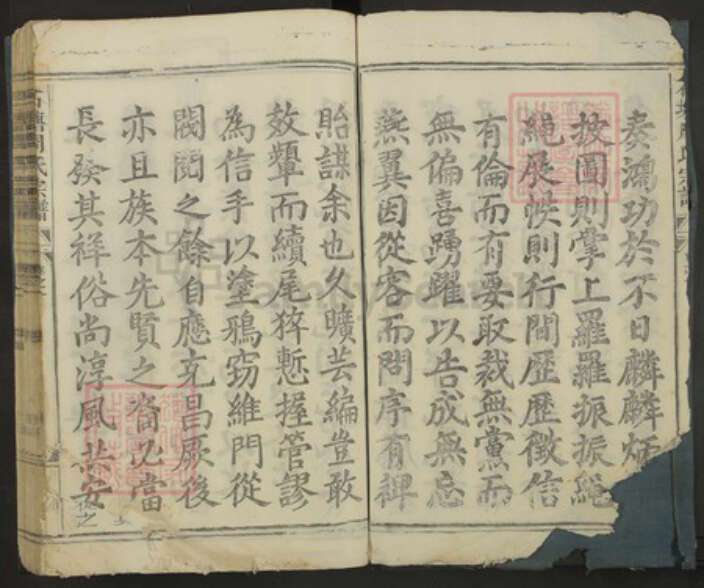 奏鴻功於不日麟麟炳
披圖則掌上羅羅振振繩
繩展帙則行間歷歷徵信
有倫而有要取裁無黨而
無偏喜踴躍以告成無忘
燕翼因從容而問序有裨
貽謀余也久曠芸編豈敢
效顰而續尾猝慙握管謬
為信手以塗鴉窃維門從
閥閱之餘自應克昌厥後
亦且族本先賢之裔必當
長發其祥俗尚淳風共安
氏宗譜